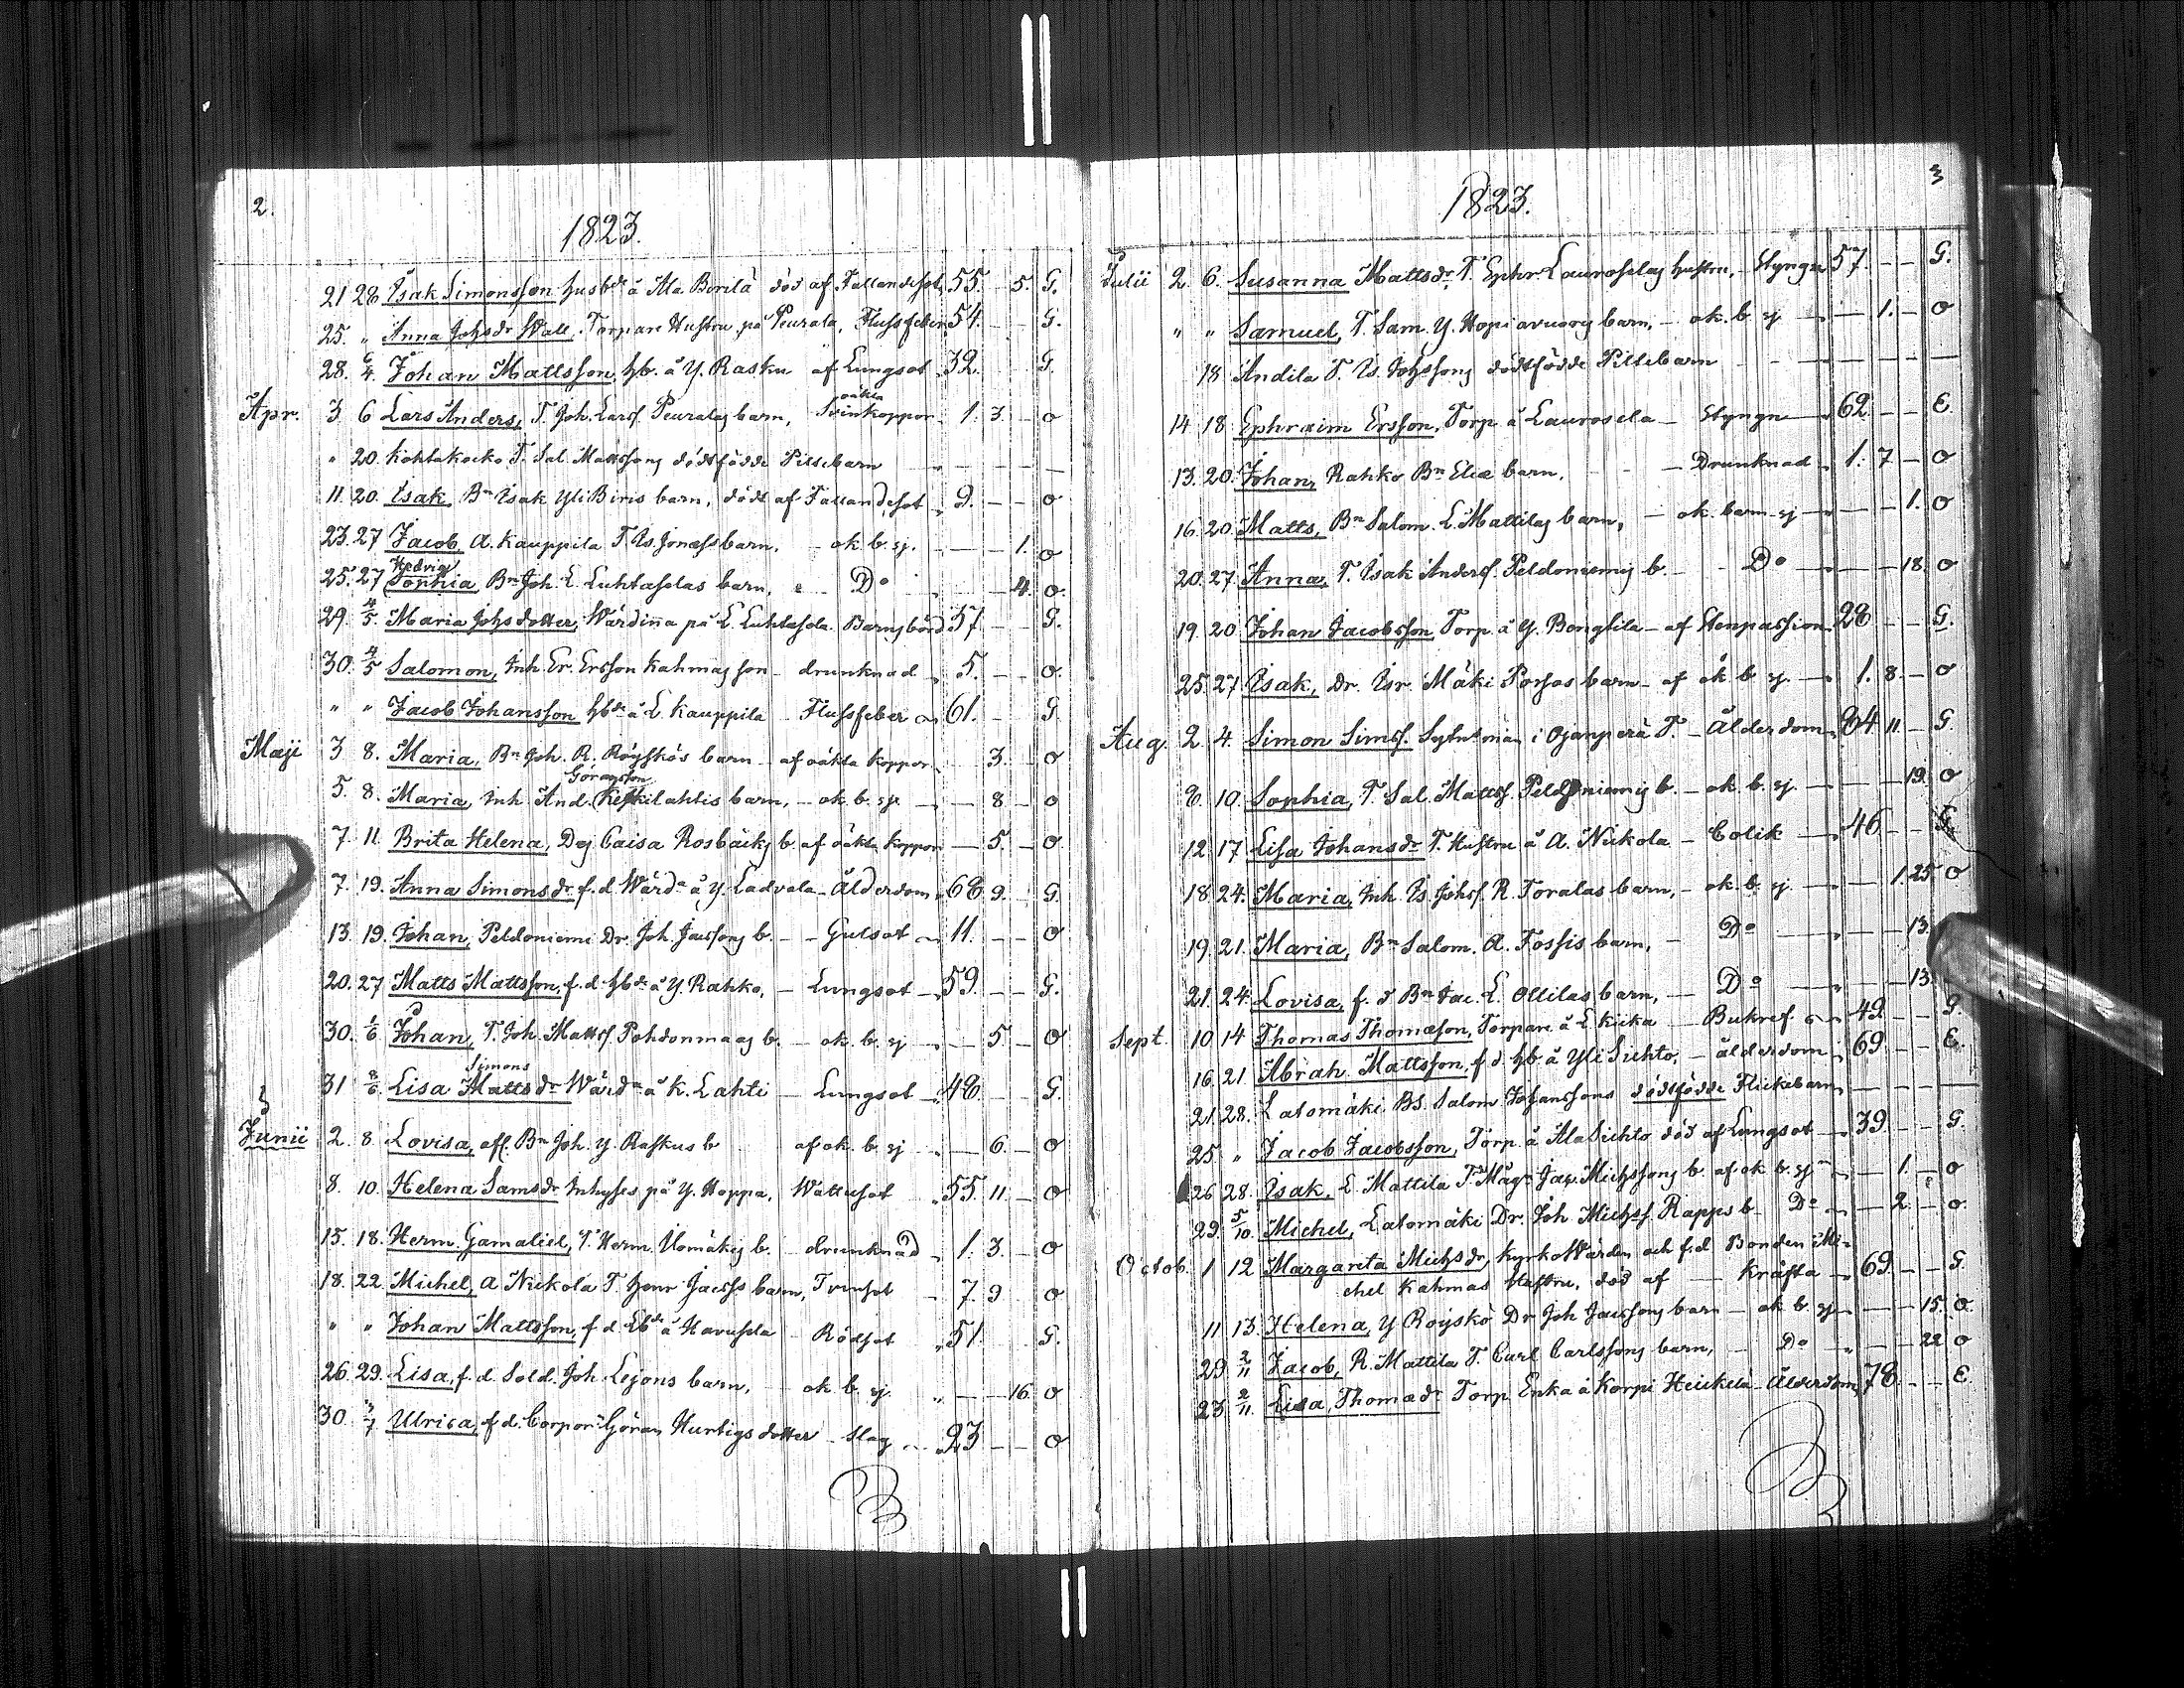 2.
1823.
21 28 Isak Simonsson husbde å Ala Borila död af Fallandesot, 55. - 5. G.
25. " Anna Johsdr Wall. Torpare Hustru på Peurala, Flussfeber 54. G.
28. 6/4. Johan Mattsson, hb. å Y. Rasku af Lungsot 32. G.
oäkta
Apr. 3 6 Lars Anders, T. Joh. Larss. Peuralas barn, Svinkoppor 1. 3. - o
" 20. Kohtakocko T. Sal. Mattssons dödfödde Piltebarn
11. 20. Isak, Bn Isak Yli Biris barn, dödt af Fallandesot 9. - - o
23. 27 Jacob, A. Kauppila T. Is. Jonæss barn. - ok. b. sj. - - 1. o
Hedvig
25. 27 Sophia, Bn Joh. L. Luhtasolas barn, Do 4. o.
29. 4/5. Maria Johsdotter, Wärdinna på L. Luhtasola Barnsbörd 37 - - G.
30. 4/5 Salomon, Inh. Er. Ersson Kahmas son - drunknad 5. - - o.
" " Jacob Johansson hbde å L. Kauppila Flussfeber 61. - G
Maji 3 8. Maria, Bn Joh. R. Röyskös barn - af oäkta koppor 3. - o
Göransson
5. 8. Maria, Inh. And. Keskilahtis barn, - ok. b. sj. - 8 - o
7. 11. Brita Helena, Dej Caisa Rosbäcks b. af oäkta koppor - 5. - o.
7. 19. Anna Simonsdr f.d. Wärda å Y. Ladvala - Ålderdom 68 9. G.
13. 19. Johan, Peldoniemi Dr. Joh. Jacssons b. - Gulsot 11. - - o
20. 27 Matts Mattsson, f.d. hbde å Y. Rahko, - Lungsot 59. - - G.
30. 1/6 Johan, T. Joh. Matts. Pohdonmaas b. - ok. b. sj - 5. - o
Simons
31 8/6. Lisa Mattsdr Wärda å K. Lahti - Lungsot 48. G.
Junii 2. 8 Lovisa, afl. Bn Joh. Y. Raskus b af ok. b. sj - 6. - o
8. 10. Helena Samsdr Inhyses på Y. Hoppa, Wattusot 55. 11. - o
15. 18. Herm. Gamaliel, T. Herm. Uomäkis b. drunknad 1. 3. - o
18. 22 Michel, A Nickola T. Henr Jacss barn, Tvinsot 7. 9 o
" " Johan Mattsson, f.d. Lbde å Havusela Rödsot 51. G.
26. 29. Lisa, f.d. Sold. Joh. Lejons barn, - ok. b. sj. - - 16. o
30. 3/7 Ulrica, f.d. Corpor. Göran Hurtigs dotter - slag 23 - - o
3
1823.
Julii 2. 6. Susanna Mattsdr. T. Ephr. Lauroselas hustru, - Styngn 57. - - G.
" " Samuel, T. Sam. Y. Hopiavuoris barn, - ok. b. sj - 1. - o
18 Andila T. Is. Johssons dödfödde Piltebarn
14 18 Ephraim Ersson, Torp. å Laurosela - Styngn 62. - - E.
13. 20. Johan, Rahko Bn Eliæ barn. - Drunknad 1. 7 - o
16. 20 Matts, Bn Salom. L. Mattilas barn, - ok. barn. sj - - 1. o
20. 27. Anna, T. Isak Anderss. Peldoniemis b. - Do - - 18. o
19. 20 Johan Jacobsson, Torp. å Y. Bonghila - af Stenpassion 28 - - G.
25. 27. Isak, Dr. Isr. Mäki Porsos barn - af ok b sj. 1. 8. - o
Aug. 2. 4. Simon Simss. Sytnsman i Ojanperä T. - Ålderdom 84 11 - G
8. 10. Sophia, T. Sal. Mattss. Peldoniemis b. - ok. b. sj. - - 19. o
12. 17. Lisa Johansdr T. Hustru å A. Nickola - Colik 46 - - G.
18 24. Maria, Inh. Is. Johss. R. Foralas barn, - ok. b. sj. - 1. 25. o
19. 21. Maria, Bn Salom. A. Fossis barn, - Do - - 13.
21. 24. Lovisa, f. d Bn Jac. L. Ollilas barn, - Do - - 13.
Sept. 10 14 Thomas Thomæson, Torpare å L. Kiika - Bukref 49. - - G.
16. 21 Abrah. Mattsson, f.d. hb. å Yli Sichto, - ålderdom 69 - - E.
21. 28. Latomäki Bs. Salom Johanssons dödfödde Flickebarn
25. " Jacob Jacobsson, Torp. å Ala Sichto död af Lungsot 39. - - G.
26 28. Isak, L. Mattila T. Måg Jac. Michssons b. af ok. b. sj - 1. - o
29. 5/10. Michel, Latomäki Dr. Joh. Michss. Rapps b. Do - 2 - o.
Octob. 1 12 Margareta Michsdr, KyrkoWärden och f.d. Bonden Mi-
chel Kahmas Hustru, död af - Kräfta 69. - - G
11. 13. Helena, Y Röyskö Dr Joh Jacssons barn - ok. b. sj - - 15. o.
29 2/11 Jacob, R. Mattila T. Carl Carlssons barn, - Do - - 22 o
23 2/11. Lisa, Thomædr Torp Enka å Korpi Heickilä Ålderdom 78. - - E.